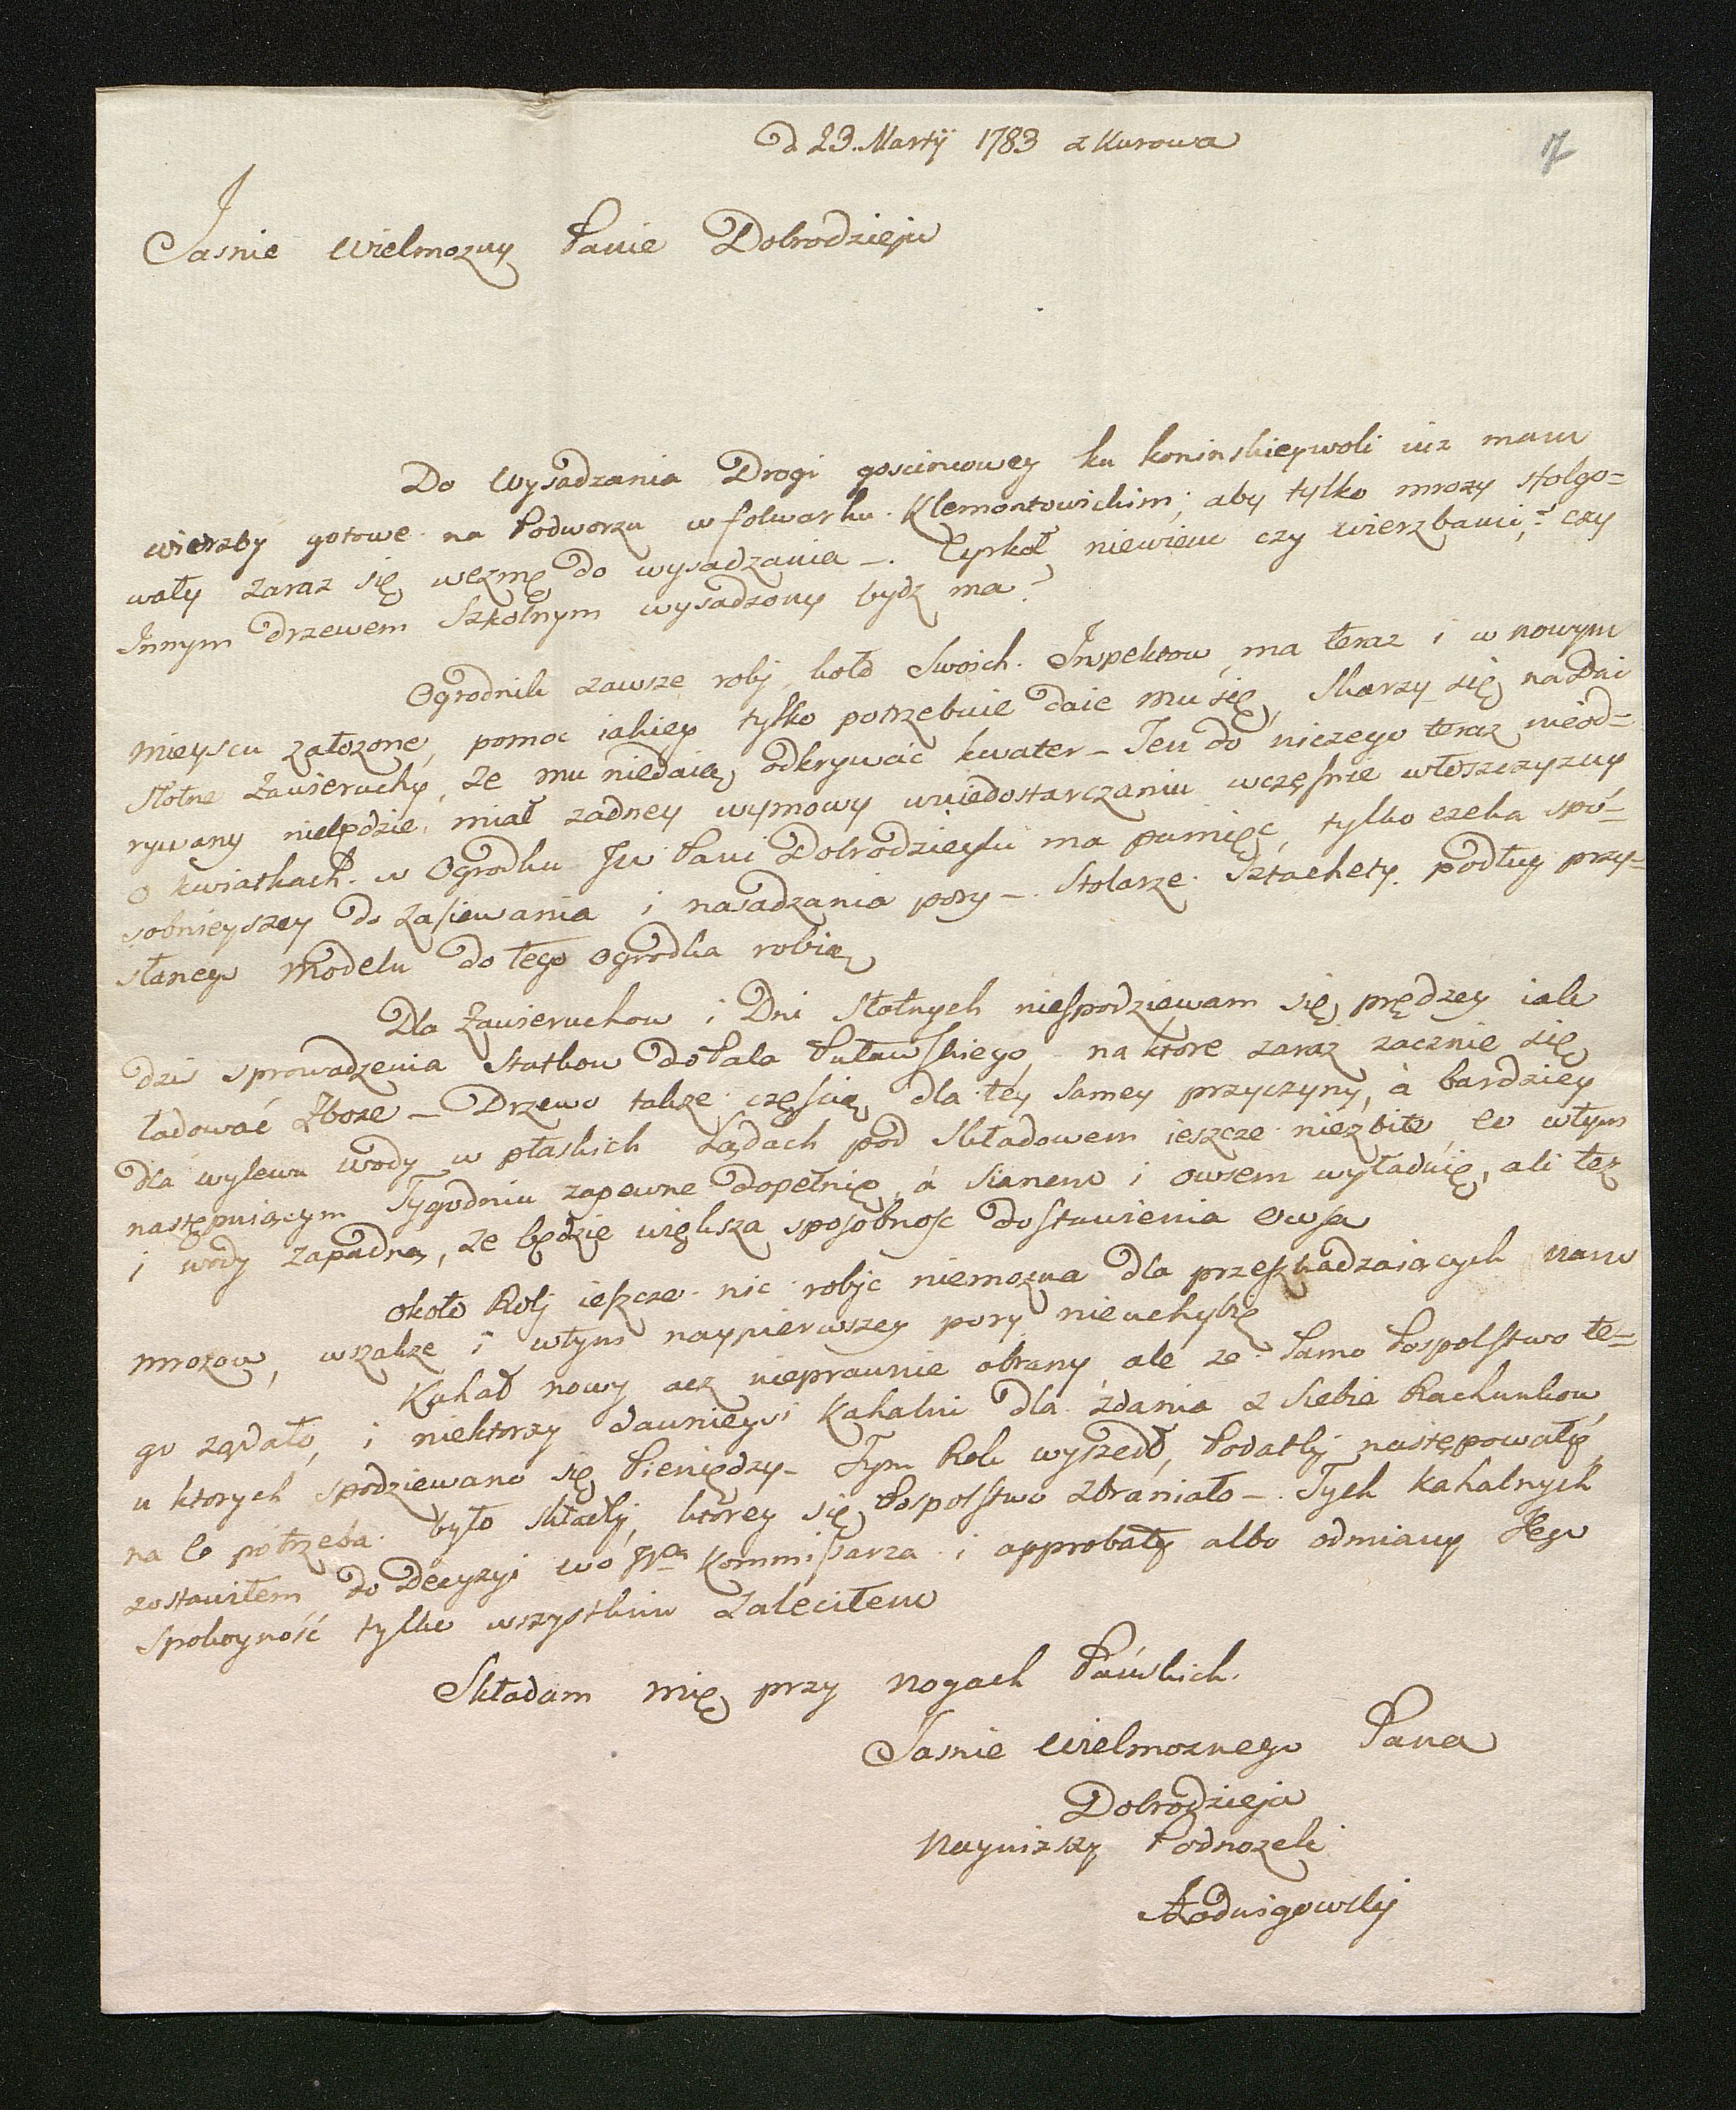 d 23. Martÿ 1783 z Kurowa
17
Jasnie Wielmozny Panie Dobrodzieju
Do wysadzania Drogi goscincowey ku koninskieywoli iuz mam
wierzby gotowe na Podworzu w folwarku Klemontowickim; aby tylko mrozy sfolgo=
wały zaraz się wezmę do wysadzania –. Cyrkoł niewiem czy wierzbami? czy
Innym drzewem Szkolnym wysadzony bydz ma?
Ogrodnik zawsze robj koło Swoich Inspektow, ma teraz i w nowym
mieyscu załozone, pomoc iakiey tylko potrzebuie daie mu się, Skarzy się na Dni
Słotne Zawieruchy, ze mu niedaią odkrywać kwater – Ten do niczego teraz nieod=
rywany niebędzie miał zadney wymowy wniedostarczaniu wczęsnie włoszczyzny
o kwiatkach w Ogrodku JW Pani Dobrodzieyki ma pamięc, tylko czeka spo=
sobnieyszey do zasiewania i nasadzania pory – Stolarze Sztachety podług przy=
słanego Modelu do tego ogrodka robią
Dla Zawieruchow i Dni Słotnych niespodziewam się prędzey iak
dzis sprowadzenia Statkow do Pala Puławskiego, na ktore zaraz zacznie się
ładować Zboze – Drzewo takze częścią dla tey samey przyczyny, à bardziey
dla wylewu wody w płaskich Lądach pod Składowem ieszcze niezbite, co wtym
następuiącym Tygodniu zapewne dopełnię, à Sianem i owsem wyładuię, ali tez
i wody zapadną, ze będzie większa sposobnosc dostawienia owsa
około Rolj ieszcze nic robjc niemozna dla przeszkadzaiących nam
mrozow, wszakze i wtym naypierwszey pory nieuchybię
Kahał nowy acz nieprawnie obrany, ale ze Samo Pospolstwo te=
go ządało, i niektorzy dawnieysi Kahalni dla zdania z Siebie Rachunkow
u ktorych spodziewano się Pieniędzy – Tym Rok wyszedł, Podatkj następowały,
na co potrzeba było składkj, ktorey się Pospolstwo zbraniało – Tych Kahalnych
zostawiłem do Decyzyi Kommissarza i approbaty albo odmiany Jego
Spokoyność tylko wszystkim zaleciłem
Składam mię przy nogach Pańskich
Jasnie Wielmoznego Pana
Dobrodzieja
Naynizszy Podnozek